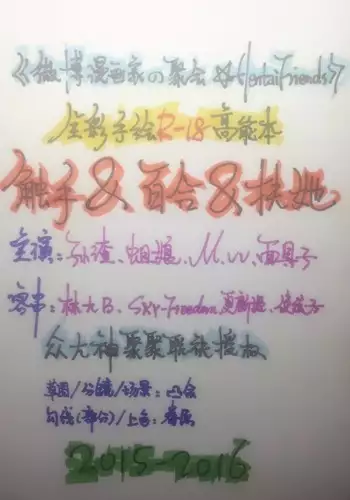 《微博漫画家の聚会 好HentaiFriends》
全彩手绘R-18高能本
触手&百合&扶她
主演:孙渣、蛆娘、M.W、面具子
客串:林大B、Sky-Freedom、更新
众大神聚聚联袂授权
草图/分镜/场景:凸会
勾线(部分)/上色:
2015-2016